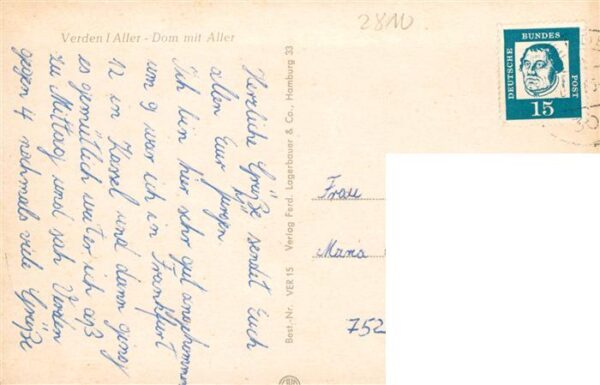 Verden / Aller - Dom mit Aller
2810
DEUTSCHE BUNDESPOST
15
Herzliche Grüße sendet Euch
allen Euer
Ich bin hier sehr gut angekommen
um 9 war ich in Frankfurt
12 in Kassel und dann ging
es gemütlich weiter ich aß
zu Mittag und sah Verden
gegen 4 nochmals viele Grüße
Best.-Nr. VER 15 Verlag Ferd. Lagerbauer & Co., Hamburg 33
Frau
Maria
752